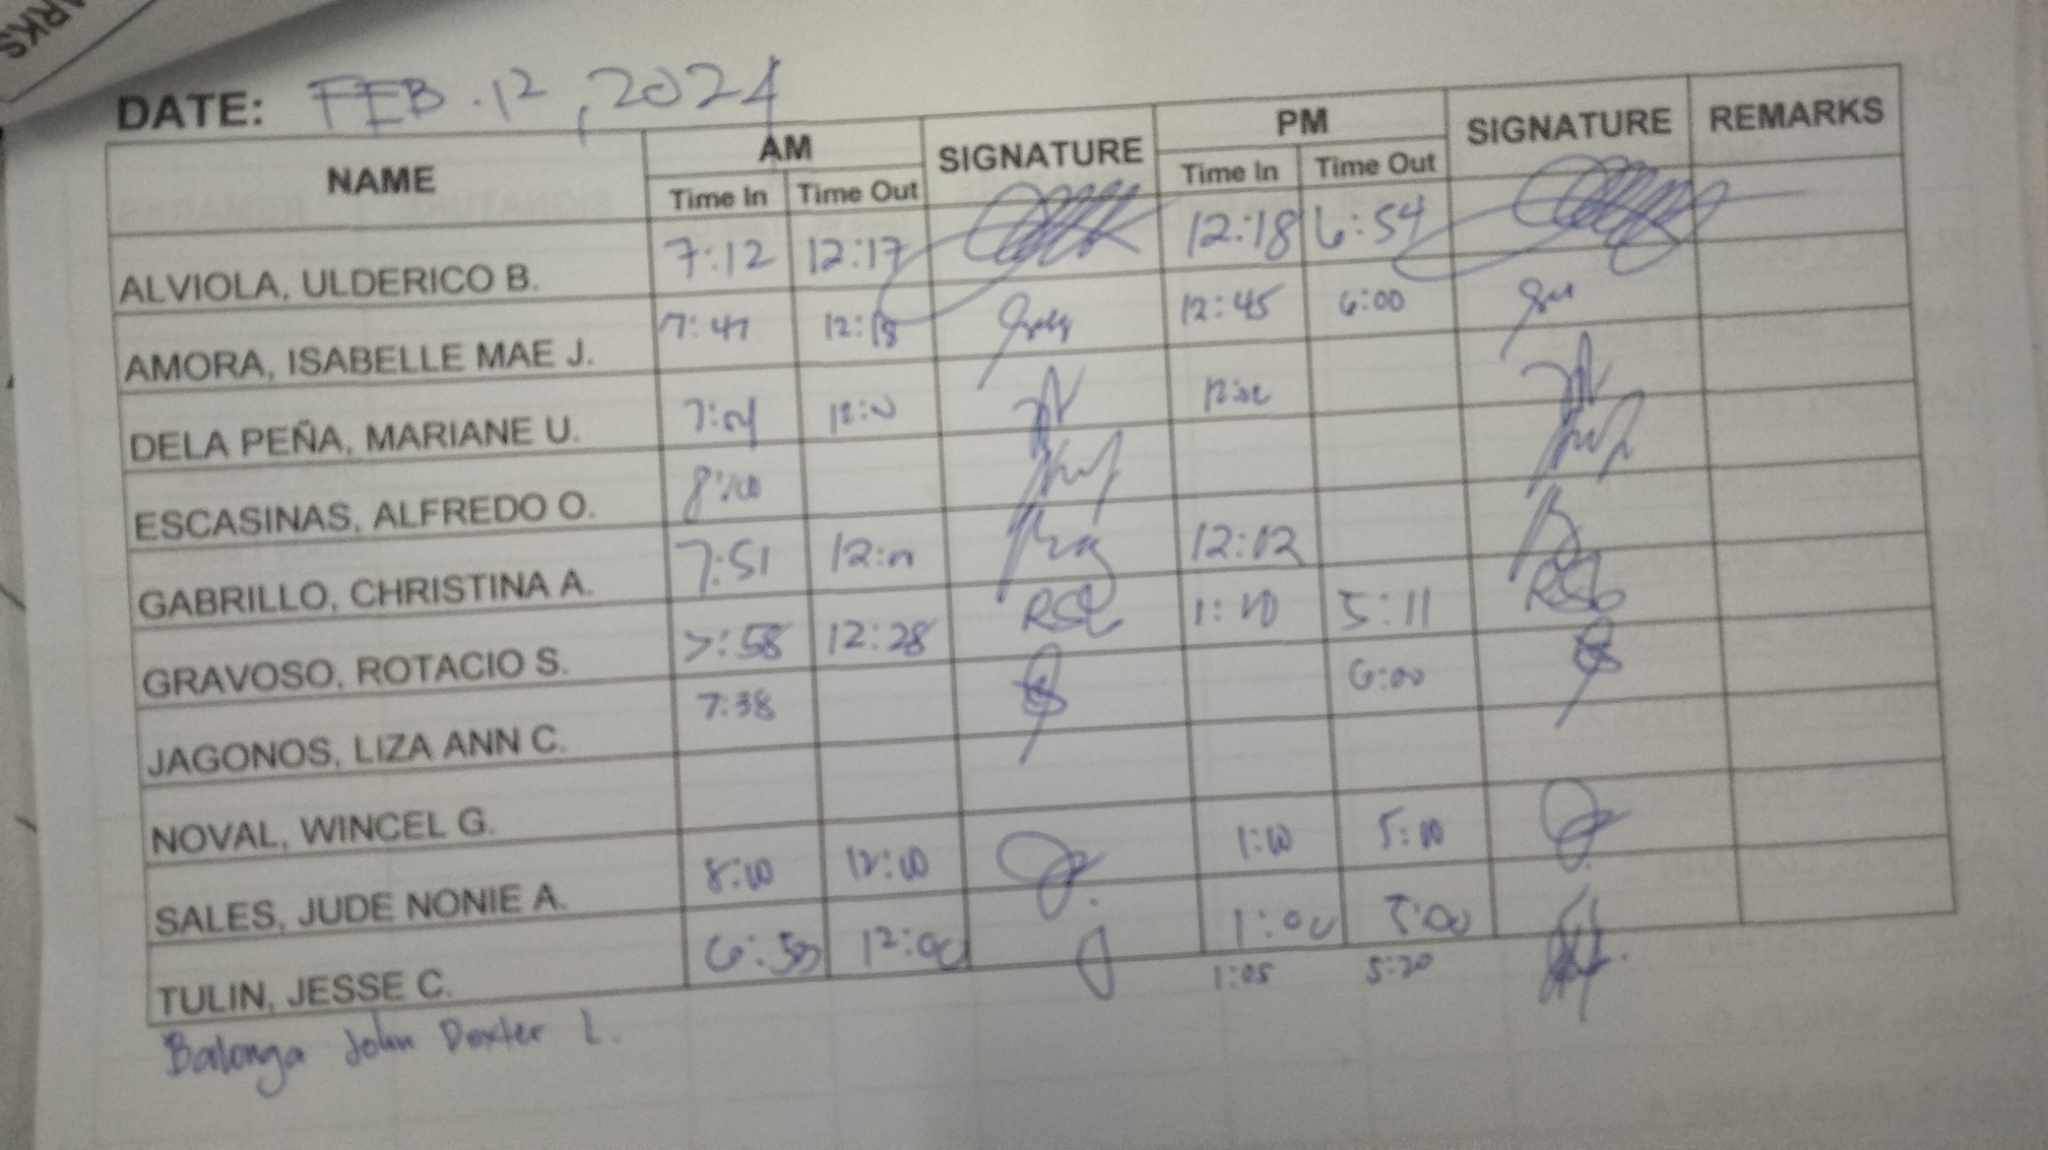 DATE: FEB. 12, 2024
NAME AM SIGNATURE PM SIGNATURE REMARKS
Time In Time Out Time In Time Out
ALVIOLA, ULDERICO B. 7:12 12:17 12:18 6:54
AMORA, ISABELLE MAE J. 7:47 12:18 12:45 6:00
DELA PEÑA, MARIANE U.
ESCASINAS, ALFREDO O. 8:00
GABRILLO, CHRISTINA A. 7:51 12:02
GRAVOSO, ROTACIO S. 7:58 12:28 1:10 5:11
JAGONOS, LIZA ANN C. 7:38 6:00
NOVAL, WINCEL G.
SALES, JUDE NONIE A. 8:00 12:00 1:00 5:00
TULIN, JESSE C. 6:50 12:00 1:00 5:00
Balonga John Dexter L. 1:05 5:20